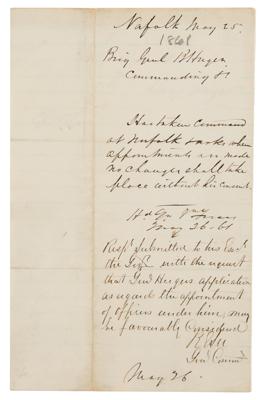 Norfolk May 25.
1861
Brig Genl B Huger
Commanding &c
Has taken command
at Norfolk & asks when
appointments are made
no changes shall take
place without his consent.
May 26. 61
Respy. Submitted to his Excy.
the Govr. with the request
that Genl Hugers application
as regard the appointment
of officers under him, may
be favourably considered
R E Lee
Genl Commdg
May 26